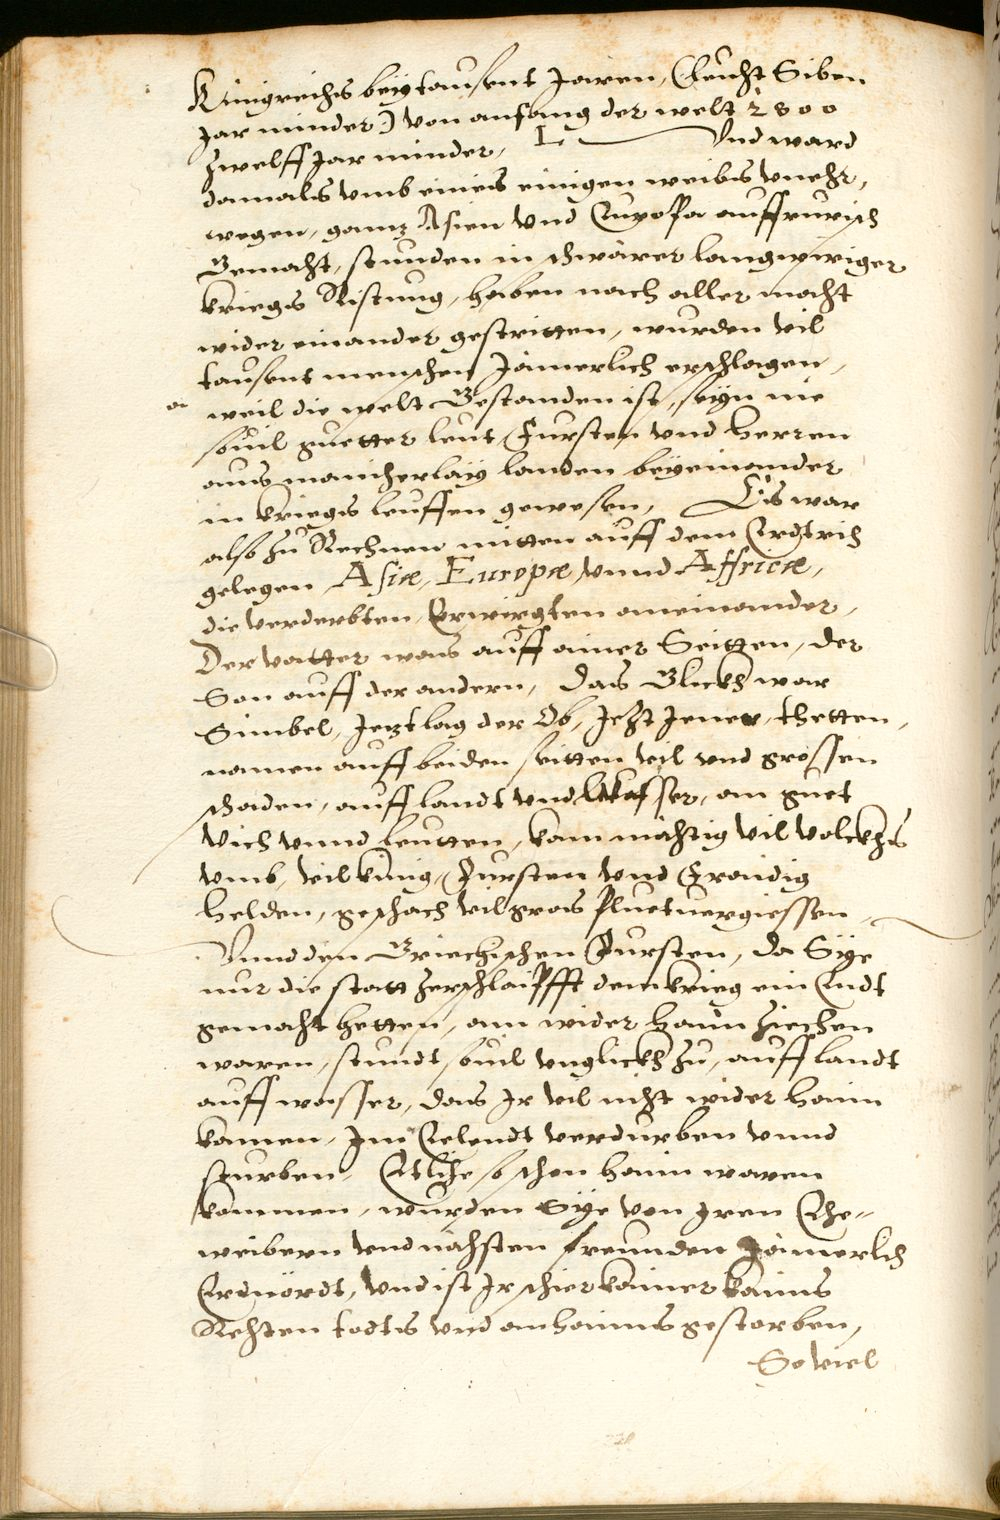 Künigreichs bey tausent Jaren, (leucht Siben
Jar minder) von anfang der welt 2800
zwelff Jar minder, L Vnd ward
damals vmb eines einigen weibs vnehr,
wegen, gannz Asien vnd Europa auffruerisch
Gemacht, stunden in schwärer langwiriger
kriegs Ristung, haben nach aller macht
wider einander gestritten, wurden vil
tausent menschen Jämerlich erschlagen,
weil die welt Gestanden ist, seyn nie
souil guetter leut Fursten vnd herren
aus mancherlay landen beyeinander
in kriegs leuffen gewesen, Es war
also zu Rechnen mitten auff dem Erdtrich
gelegen Asiæ, Europæ, vnnd Affricæ,
die verderbten, Erwirgten aneinander,
Der vatter was auff ainer Seitten, der
Son auff der andern, das Glickh war
Simbel, Jezt lag der Ob, Jezt Jener, thetten,
namen auff beiden seitten vil vnd grossen
schaden, auff landt vnd wasser, an guet
Vich vnnd leutten, kam mächtig vil volckhs
vmb, vil künig, Fursten vnd Fraidig
helden, geschach vil gros pluetuergiessen,
Vnnd den Griechischen Fursten, da Sye
nur die statt zerschlaipfft dem krieg ein Endt
gemacht hetten, am wider haim ziechen
waren, stundt souil vnglickh zu, auff landt
auff wasser, das Jr vil nicht wider haim
kamen, Jm Eelendt verdurben vnnd
sturben, Etliche so schon haim waren
kommen, wurden Sye von Jren Ehe-
weibern vnd nächsten freunden Jämerlich
Ermördt, vnd ist Jr schier kainer kains
Rechten todts vnd anhaims gestorben,
So viel